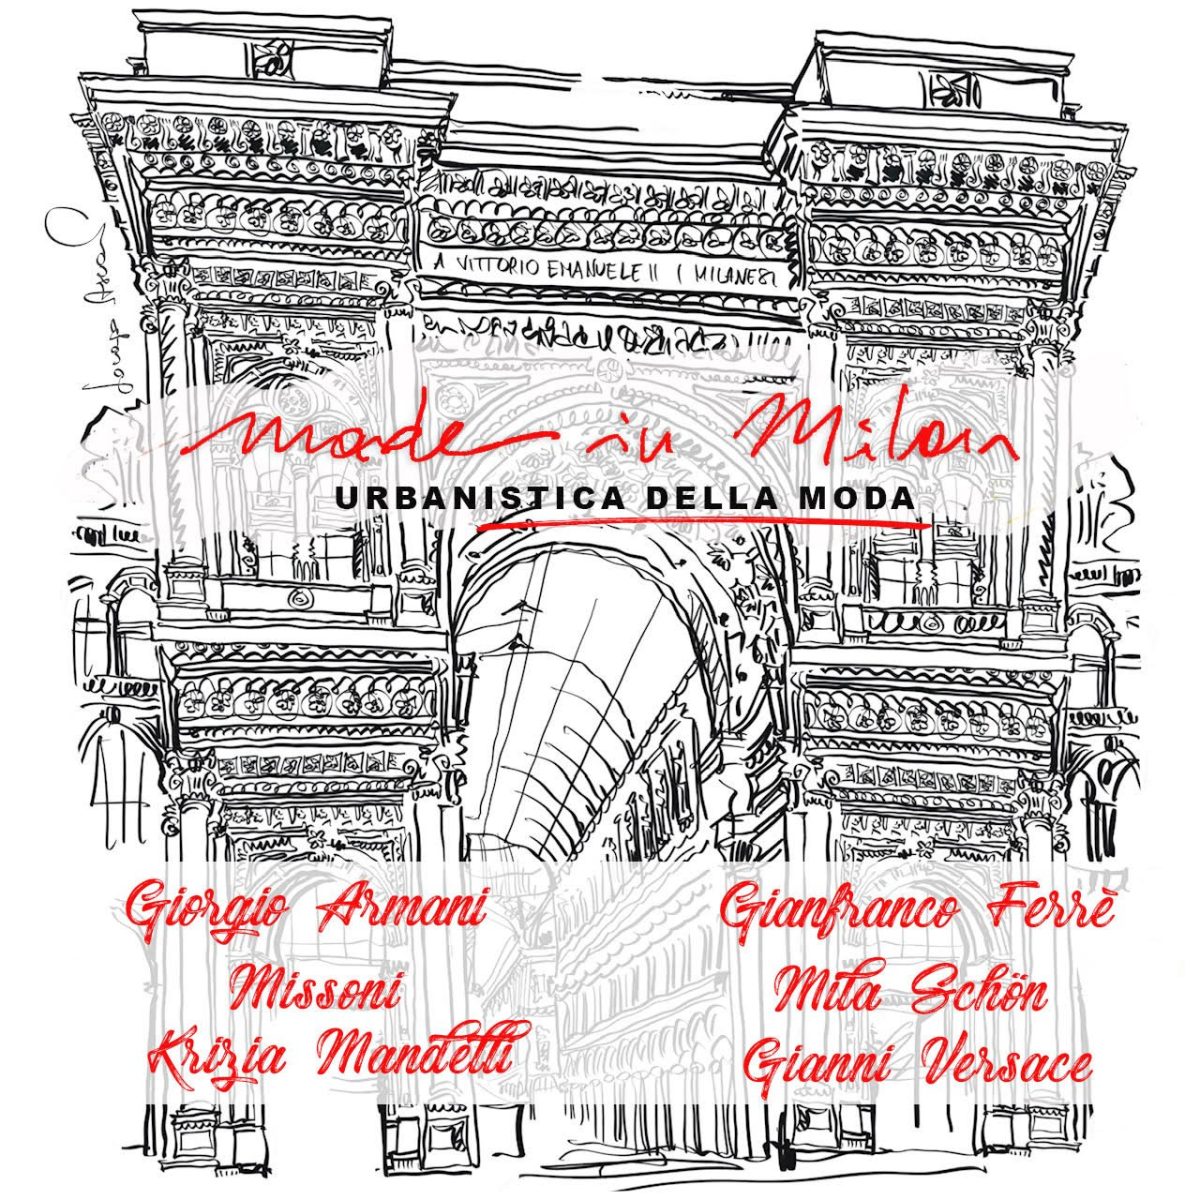 A VITTORIO EMANUELE II I MILANESI
made in Milan
URBANISTICA DELLA MODA
Giorgio Armani
Missoni
Krizia Mandelli
Gianfranco Ferrè
Mila Schön
Gianni Versace